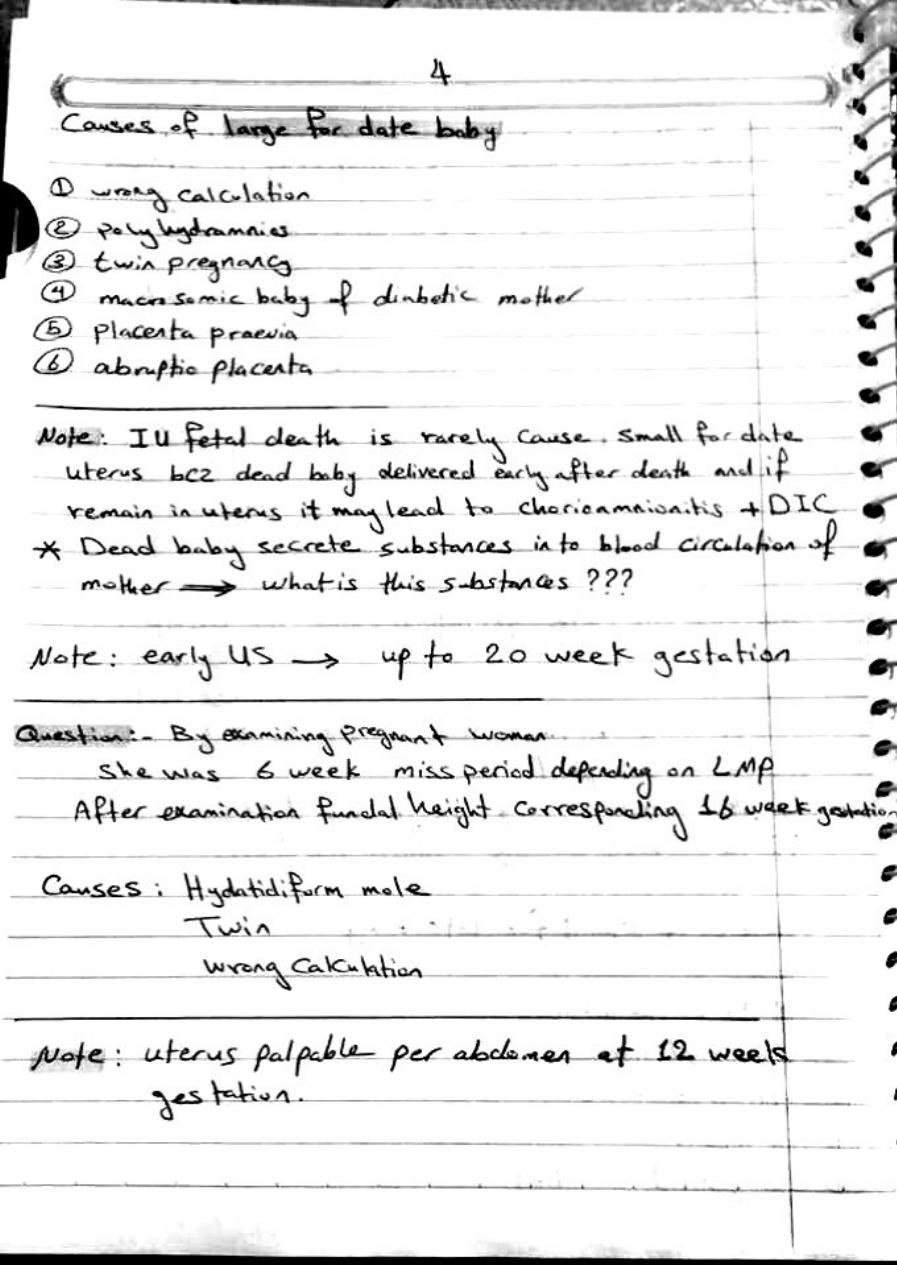 4
Causes of large for date baby
① wrong calculation
② polyhydramnios
③ twin pregnancy
④ macrosomic baby of diabetic mother
⑤ placenta praevia
⑥ abruptio placenta
Note: IU fetal death is rarely cause small for date
uterus bcz dead baby delivered early after death and if
remain in uterus it may lead to chorioamnionitis + DIC
* Dead baby secrete substances in to blood circulation of
mother → what is this substances ???
Note: early US → up to 20 week gestation
Question:- By examining pregnant woman
She was 6 week miss period depending on LMP
After examination fundal height corresponding 16 week gestation
Causes: Hydatidiform mole
Twin
wrong calculation
Note: uterus palpable per abdomen at 12 weeks
gestation.